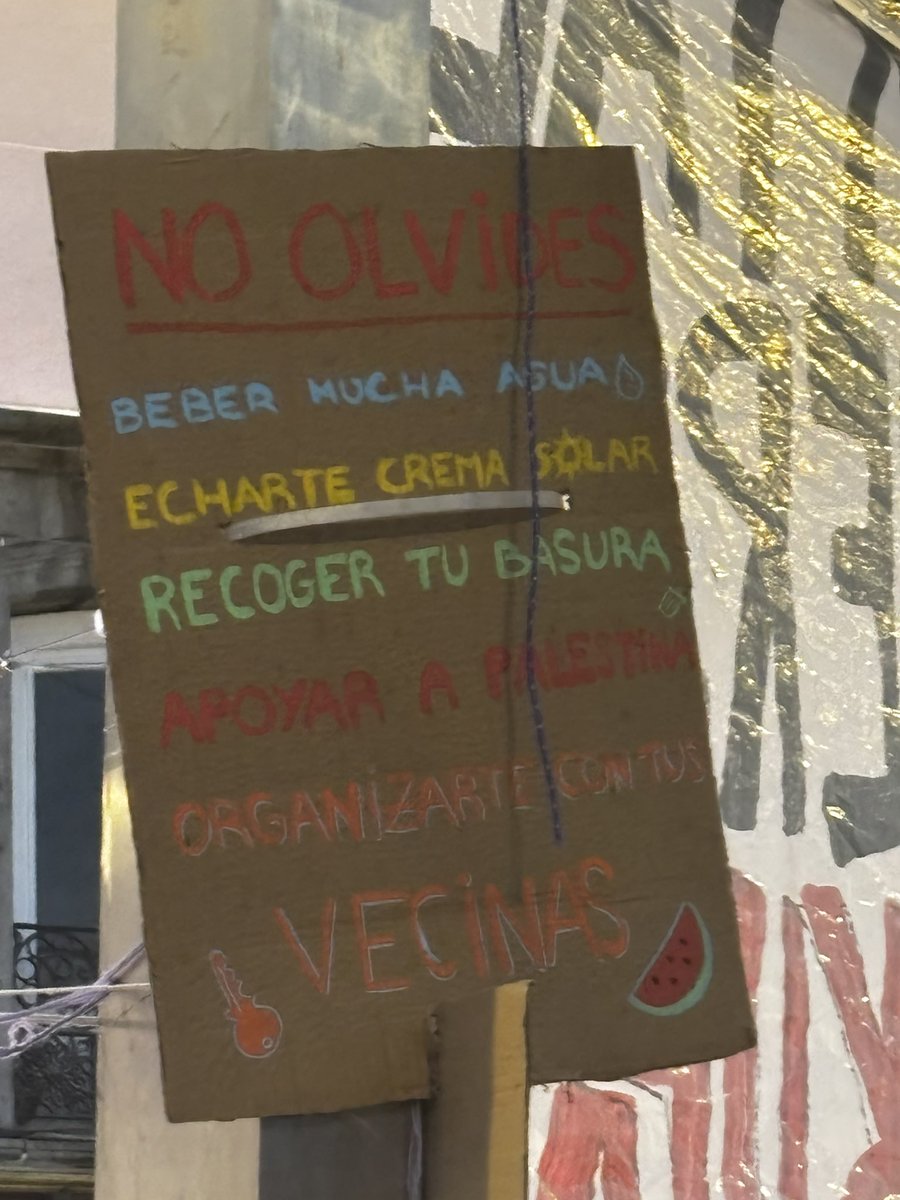 NO OLVIDES
BEBER MUCHA AGUA
ECHARTE CREMA SOLAR
RECOGER TU BASURA
APOYAR A PALESTINA
ORGANIZARTE CON TUS
VECINAS